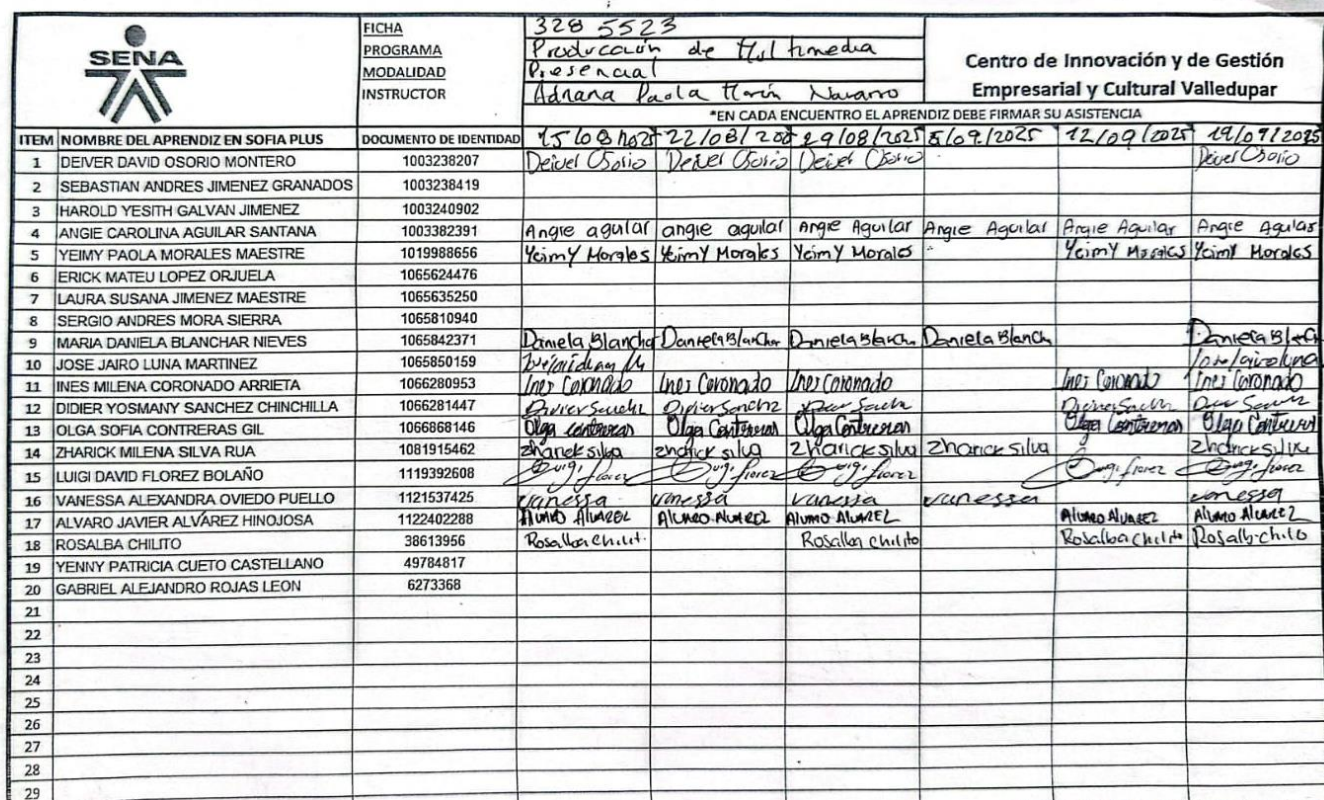 SENA
FICHA 328 5523
PROGRAMA Producción de Multimedia
MODALIDAD Presencial
INSTRUCTOR Adriana Paola Marín Navarro
Centro de Innovación y de Gestión
Empresarial y Cultural Valledupar
*EN CADA ENCUENTRO EL APRENDIZ DEBE FIRMAR SU ASISTENCIA
ITEM NOMBRE DEL APRENDIZ EN SOFIA PLUS DOCUMENTO DE IDENTIDAD 15/08/2025 22/08/202 29/08/2025 5/09/2025 12/09/2025 19/09/2025
1 DEIVER DAVID OSORIO MONTERO 1003238207 Deiver Osorio Deiver Osorio Deiver Osorio Deiver Osorio
2 SEBASTIAN ANDRES JIMENEZ GRANADOS 1003238419
3 HAROLD YESITH GALVAN JIMENEZ 1003240902
4 ANGIE CAROLINA AGUILAR SANTANA 1003382391 Angie aguilar angie aguilar Angie Aguilar Angie Aguilar Angie Aguilar Angie Aguilar
5 YEIMY PAOLA MORALES MAESTRE 1019988656 YeimY Morales YeimY Morales YeimY Morales YeimY Morales YeimY Morales
6 ERICK MATEU LOPEZ ORJUELA 1065624476
7 LAURA SUSANA JIMENEZ MAESTRE 1065635250
8 SERGIO ANDRES MORA SIERRA 1065810940
9 MARIA DANIELA BLANCHAR NIEVES 1065842371 Daniela Blanchar Daniela Blanchar Daniela Blanch Daniela Blanch Daniela Blanch
10 JOSE JAIRO LUNA MARTINEZ 1065850159 Jose Jairo luna
11 INES MILENA CORONADO ARRIETA 1066280953 Ines Coronado Ines Coronado Ines Coronado Ines Coronado Ines Coronado
12 DIDIER YOSMANY SANCHEZ CHINCHILLA 1066281447
13 OLGA SOFIA CONTRERAS GIL 1066868146 Olga contreras Olga Contreras Olga Contreras Olga Contreras Olga Contreras
14 ZHARICK MILENA SILVA RUA 1081915462 Zharick silva zharick silva Zharick silva Zharick silva zharick silva
15 LUIGI DAVID FLOREZ BOLAÑO 1119392608 Luigi florez Luigi florez Luigi florez Luigi florez Luigi florez
16 VANESSA ALEXANDRA OVIEDO PUELLO 1121537425 vanessa vanessa vanessa vanessa vanessa
17 ALVARO JAVIER ALVÁREZ HINOJOSA 1122402288 Alvaro Alvarez Alvaro Alvarez Alvaro Alvarez Alvaro Alvarez Alvaro Alvarez
18 ROSALBA CHILITO 38613956 Rosalba chilit. Rosalba chilito Rosalba chilito Rosalb chilo
19 YENNY PATRICIA CUETO CASTELLANO 49784817
20 GABRIEL ALEJANDRO ROJAS LEON 6273368
21
22
23
24
25
26
27
28
29